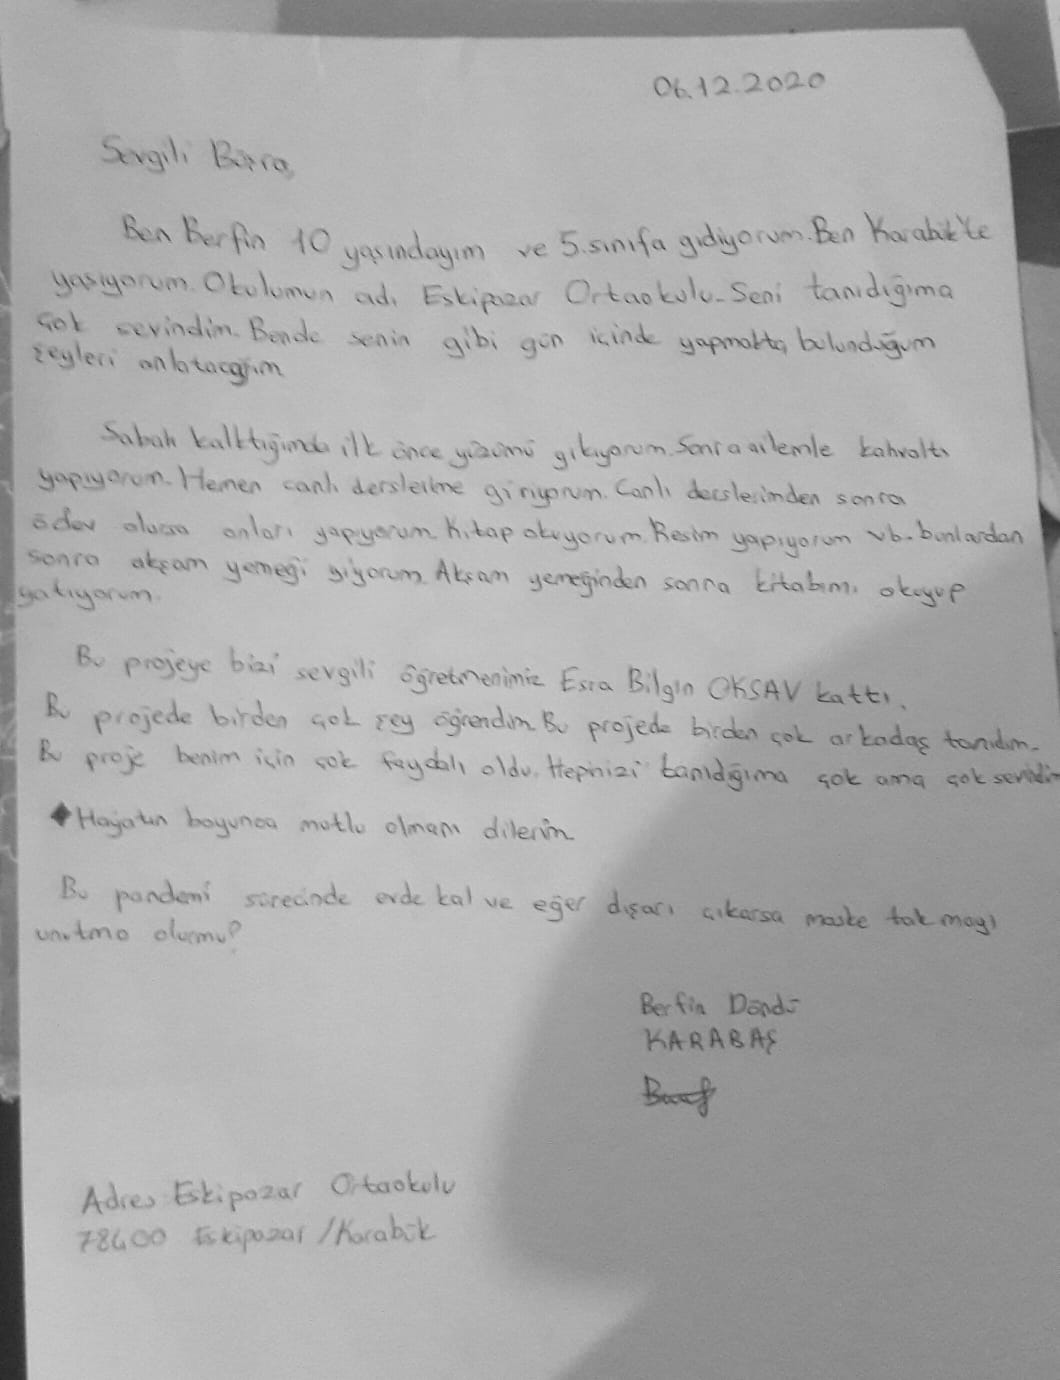 06.12.2020
Sevgili Büşra,
Ben Berfin 10 yaşındayım ve 5.sınıfa gidiyorum. Ben Karabük'te
yaşıyorum. Okulumun adı Eskipazar Ortaokulu. Seni tanıdığıma
çok sevindim. Bende senin gibi gün içinde yapmakta bulunduğum
şeyleri anlatacağım
Sabah kalktığımda ilk önce yüzümü yıkıyorum. Sonra ailemle kahvaltı
yapıyorum. Hemen canlı derslerime giriyorum. Canlı derslerimden sonra
ödev olursa onları yapıyorum. Kitap okuyorum. Resim yapıyorum vb. bunlardan
sonra akşam yemeği yiyorum. Akşam yemeğinden sonra kitabımı okuyup
yatıyorum.
Bu projeye bizi sevgili öğretmenimiz Esra Bilgin OKSAV kattı.
Bu projede birden çok şey öğrendim. Bu projede birden çok arkadaş tanıdım.
Bu proje benim için çok faydalı oldu. Hepinizi tanıdığıma çok ama çok sevindim
Hayatın boyunca mutlu olmanı dilerim
Bu pandemi sürecinde evde kal ve eğer dışarı çıkarsa maske takmayı
unutma olurmu?
Berfin Döndü
KARABAŞ
Adres Eskipazar Ortaokulu
78400 Eskipazar / Karabük